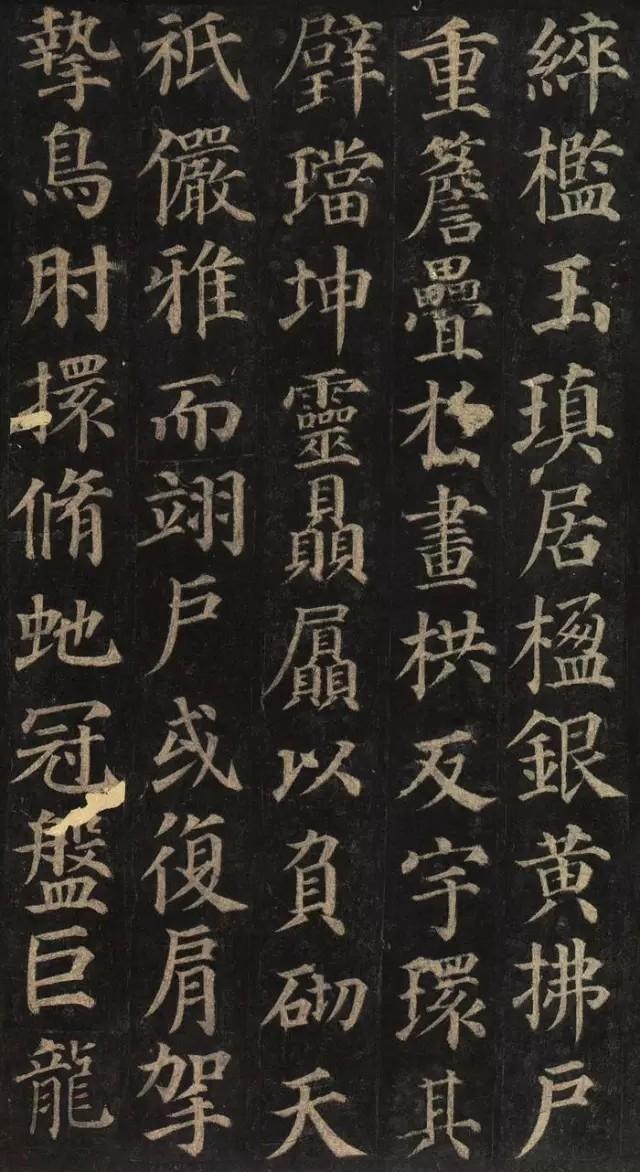 綷檻玉瑱居楹銀黃拂戶
重簷疊扵畫栱反宇環其
璧璫坤靈贔屭以負砌天
祇儼雅而翊戶或復肩挐
摯鳥肘擐脩虵冠盤巨龍